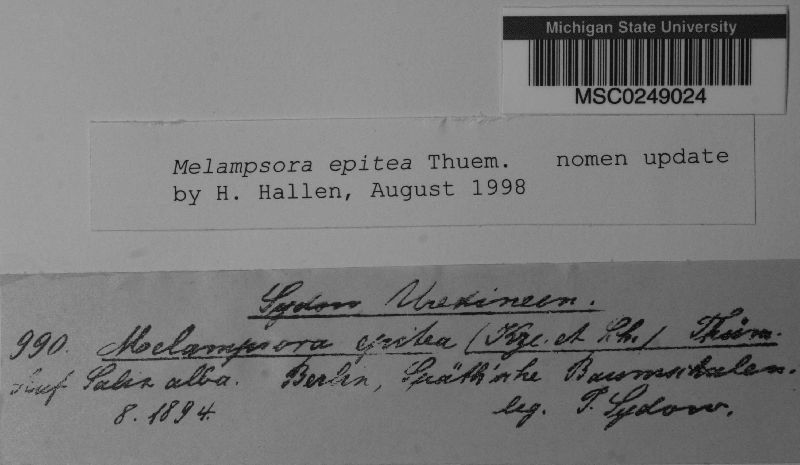 Michigan State University
MSC0249024
Melampsora epitea Thuem. nomen update
by H. Hallen, August 1998
Sydow Uredineen.
990. Melampsora epitea (Kze. et Sch.) Thüm.
Auf Salix alba. Berlin, Späth'sche Baumschulen.
8. 1894. leg. P. Sydow.